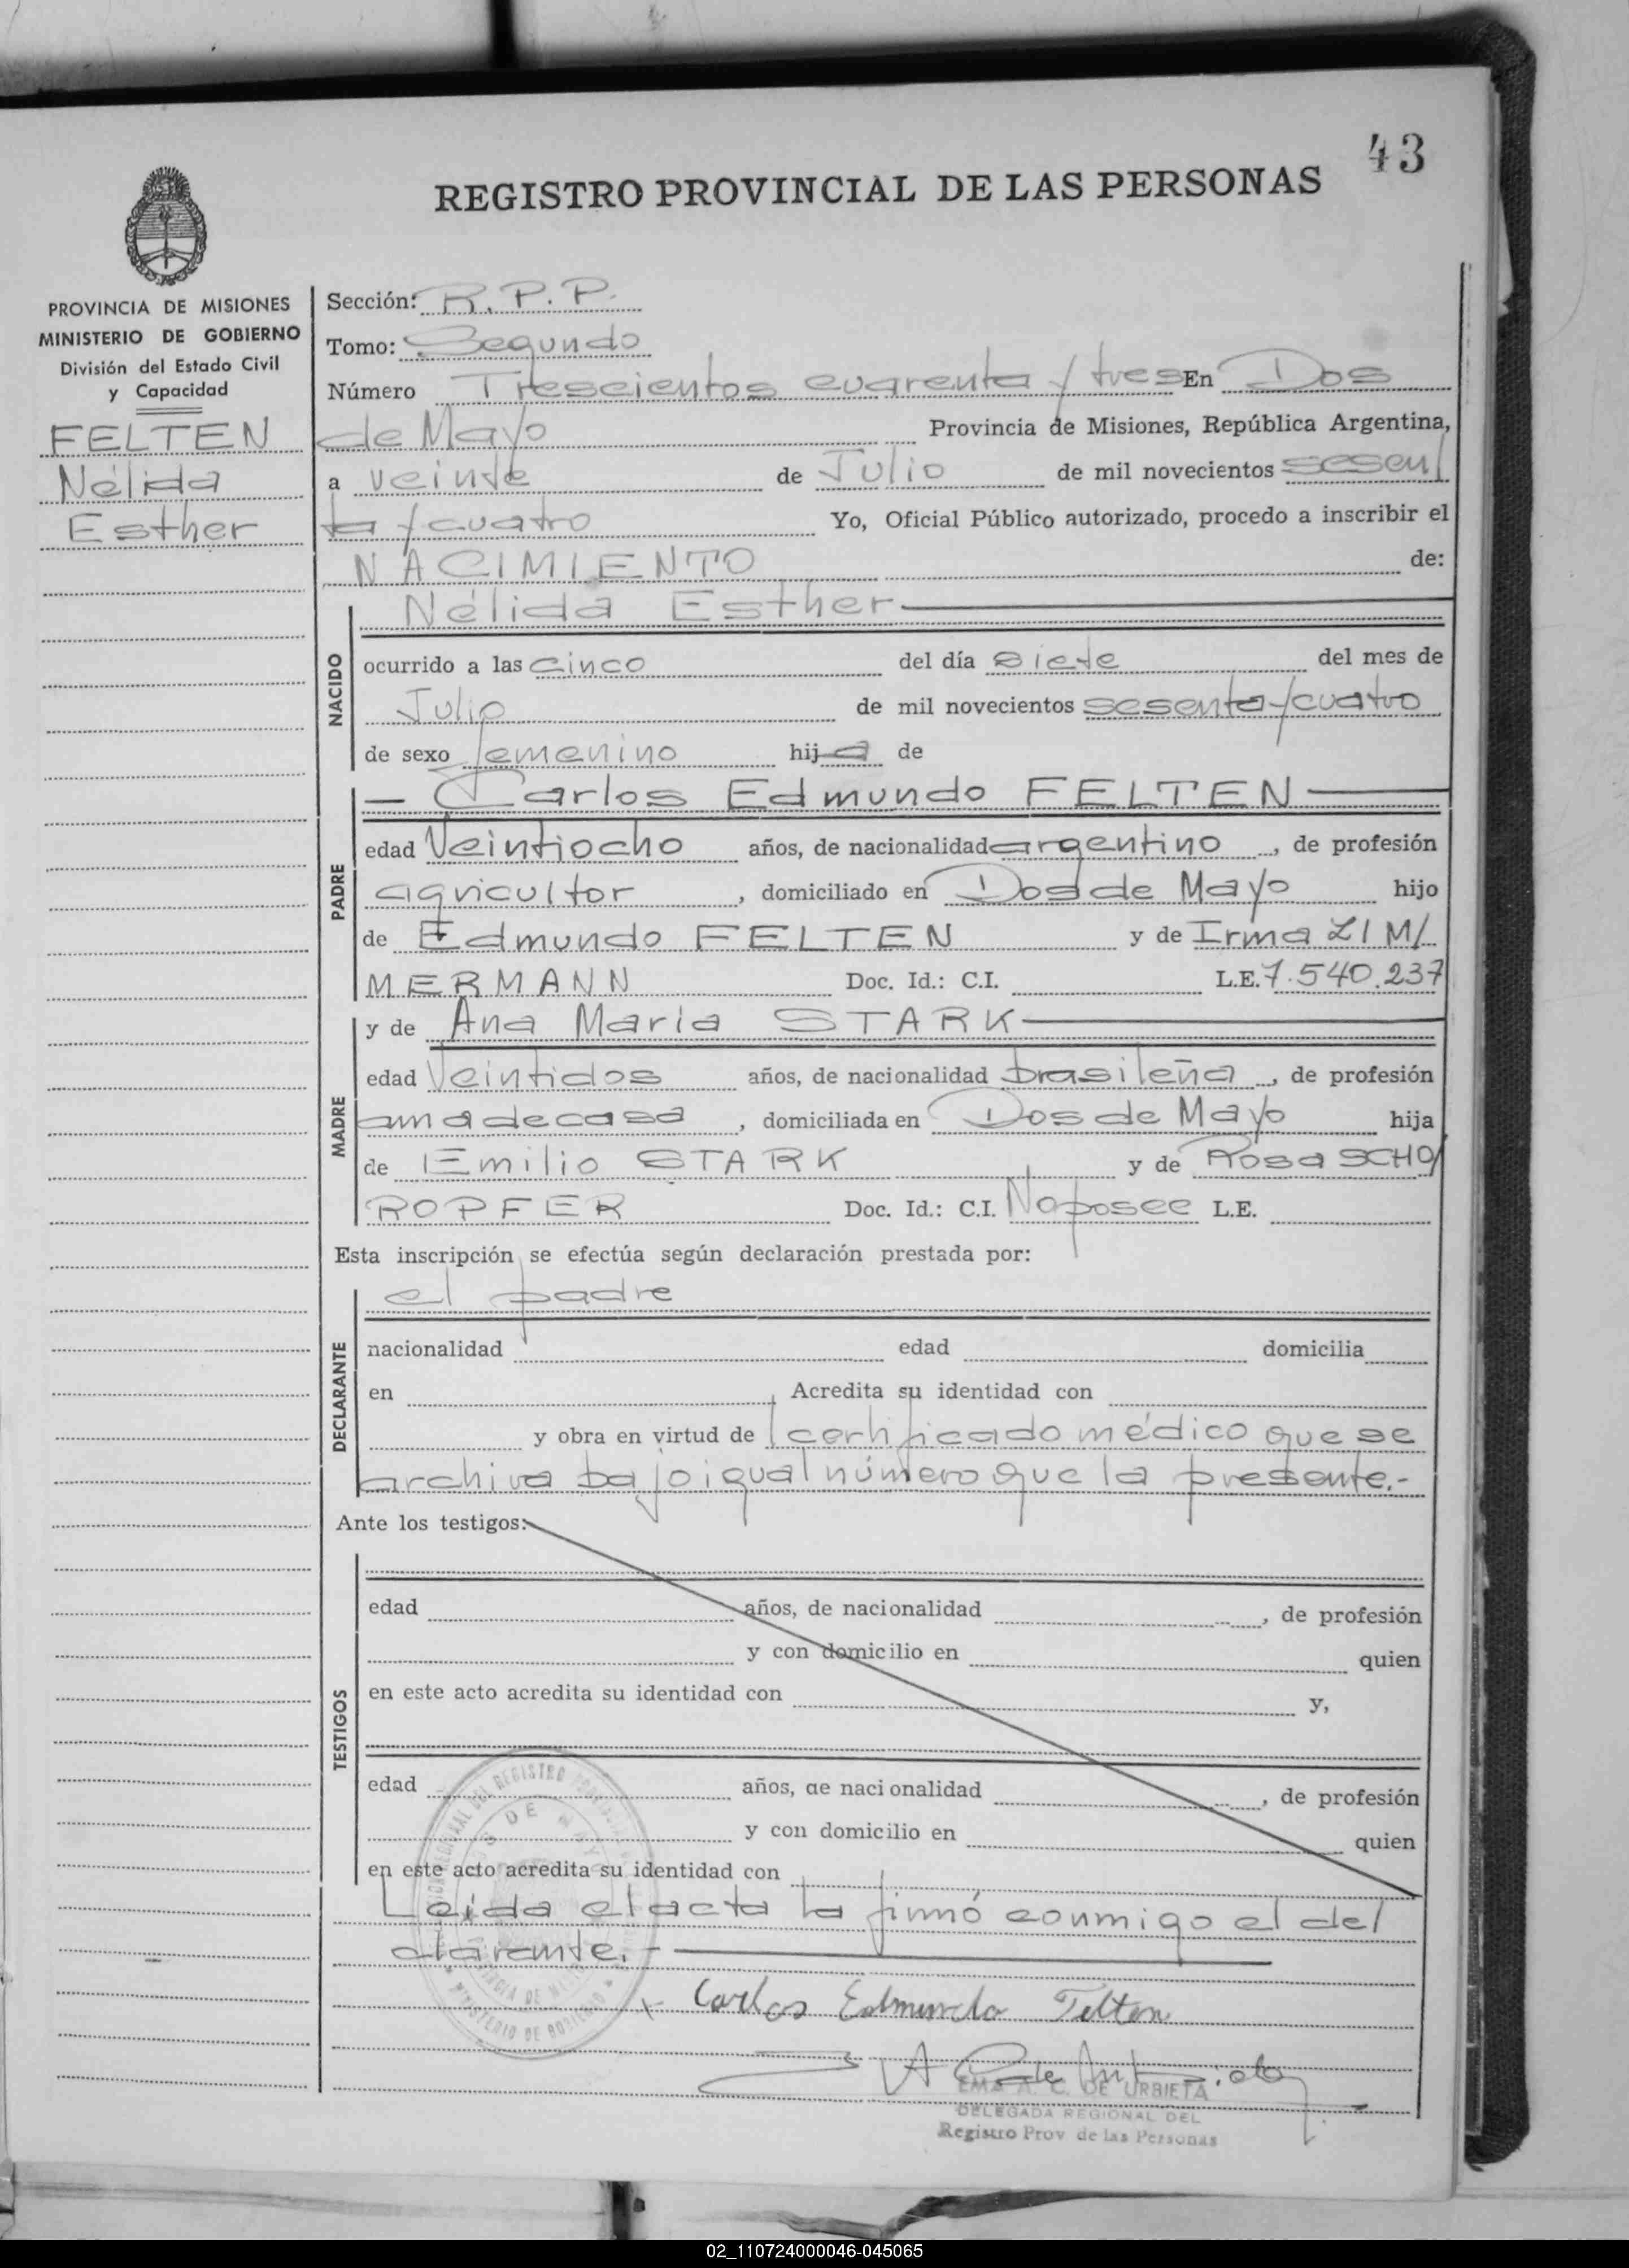 43
REGISTRO PROVINCIAL DE LAS PERSONAS
PROVINCIA DE MISIONES
MINISTERIO DE GOBIERNO
División del Estado Civil
y Capacidad
FELTEN
Nélida
Esther
Sección: R.P.P.
Tomo: Segundo
Número Trescientos cuarenta y tres En Dos
de Mayo Provincia de Misiones, República Argentina,
a veinte de Julio de mil novecientos sesen/
ta y cuatro Yo, Oficial Público autorizado, procedo a inscribir el
NACIMIENTO de:
NACIDO
Nélida Esther
ocurrido a las cinco del día siete del mes de
Julio de mil novecientos sesenta y cuatro
de sexo femenino hija de
PADRE
— Carlos Edmundo FELTEN
edad Veintiocho años, de nacionalidad argentino, de profesión
agricultor, domiciliado en Dos de Mayo hijo
de Edmundo FELTEN y de Irma ZIM/
MERMANN Doc. Id.: C.I. L.E. 7.540.237
MADRE
y de Ana Maria STARK
edad Veintidos años, de nacionalidad brasileña, de profesión
ama de casa, domiciliada en Dos de Mayo hija
de Emilio STARK y de Rosa SCHO/
ROPFER Doc. Id.: C.I. No posee L.E.
Esta inscripción se efectúa según declaración prestada por:
DECLARANTE
el padre
nacionalidad edad domicilia
en Acredita su identidad con
y obra en virtud de certificado médico que se
archiva bajo igual número que la presente.-
Ante los testigos:
TESTIGOS
edad años, de nacionalidad , de profesión
y con domicilio en quien
en este acto acredita su identidad con y,
edad años, de nacionalidad , de profesión
y con domicilio en quien
en este acto acredita su identidad con
Leída el acta la firmó conmigo el de/
clarante.-
Carlos Edmundo Felten
EMA A. C. DE URBIETA
DELEGADA REGIONAL DEL
Registro Prov de las Personas
02_110724000046-045065